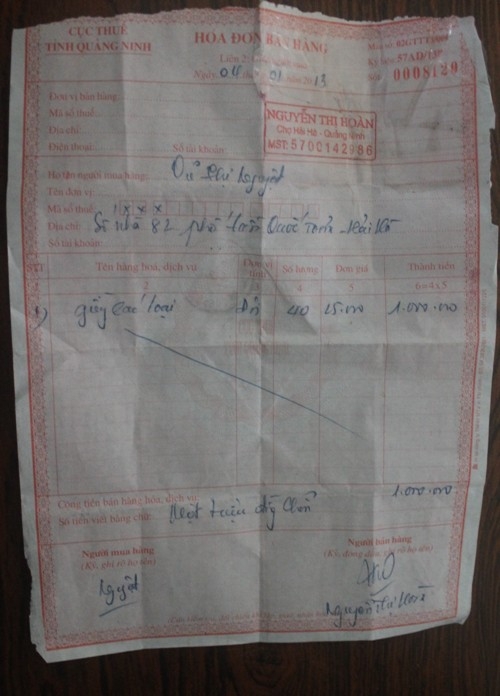 CỤC THUẾ
TỈNH QUẢNG NINH
HÓA ĐƠN BÁN HÀNG
Liên 2:
Ngày 04 01 2013
57AD/13P
Số 0008129
Đơn vị bán hàng:
Mã số thuế:
Địa chỉ:
Điện thoại: Số tài khoản:
NGUYỄN THỊ HOÀN
Chợ Hải Hà - Quảng Ninh
MST: 5700142986
Họ tên người mua hàng: Nguyệt
Tên đơn vị
Mã số thuế: x x x
Địa chỉ: Số nhà 82 phố Trần Quốc Toản Hải Hà
Số tài khoản:
STT Tên hàng hoá, dịch vụ Đơn vị tính Số lượng Đơn giá Thành tiền
2 4 5 6=4x5
1) giầy các loại 40 25.000 1.000.000
Cộng tiền bán hàng hóa, dịch vụ: 1.000.000
Số tiền viết bằng chữ: Một triệu đồng chẵn
Người mua hàng
(Ký, ghi rõ họ tên)
Người bán hàng
(Ký, đóng dấu, ghi rõ họ tên)
Nguyệt
Nguyễn Thị Hoàn